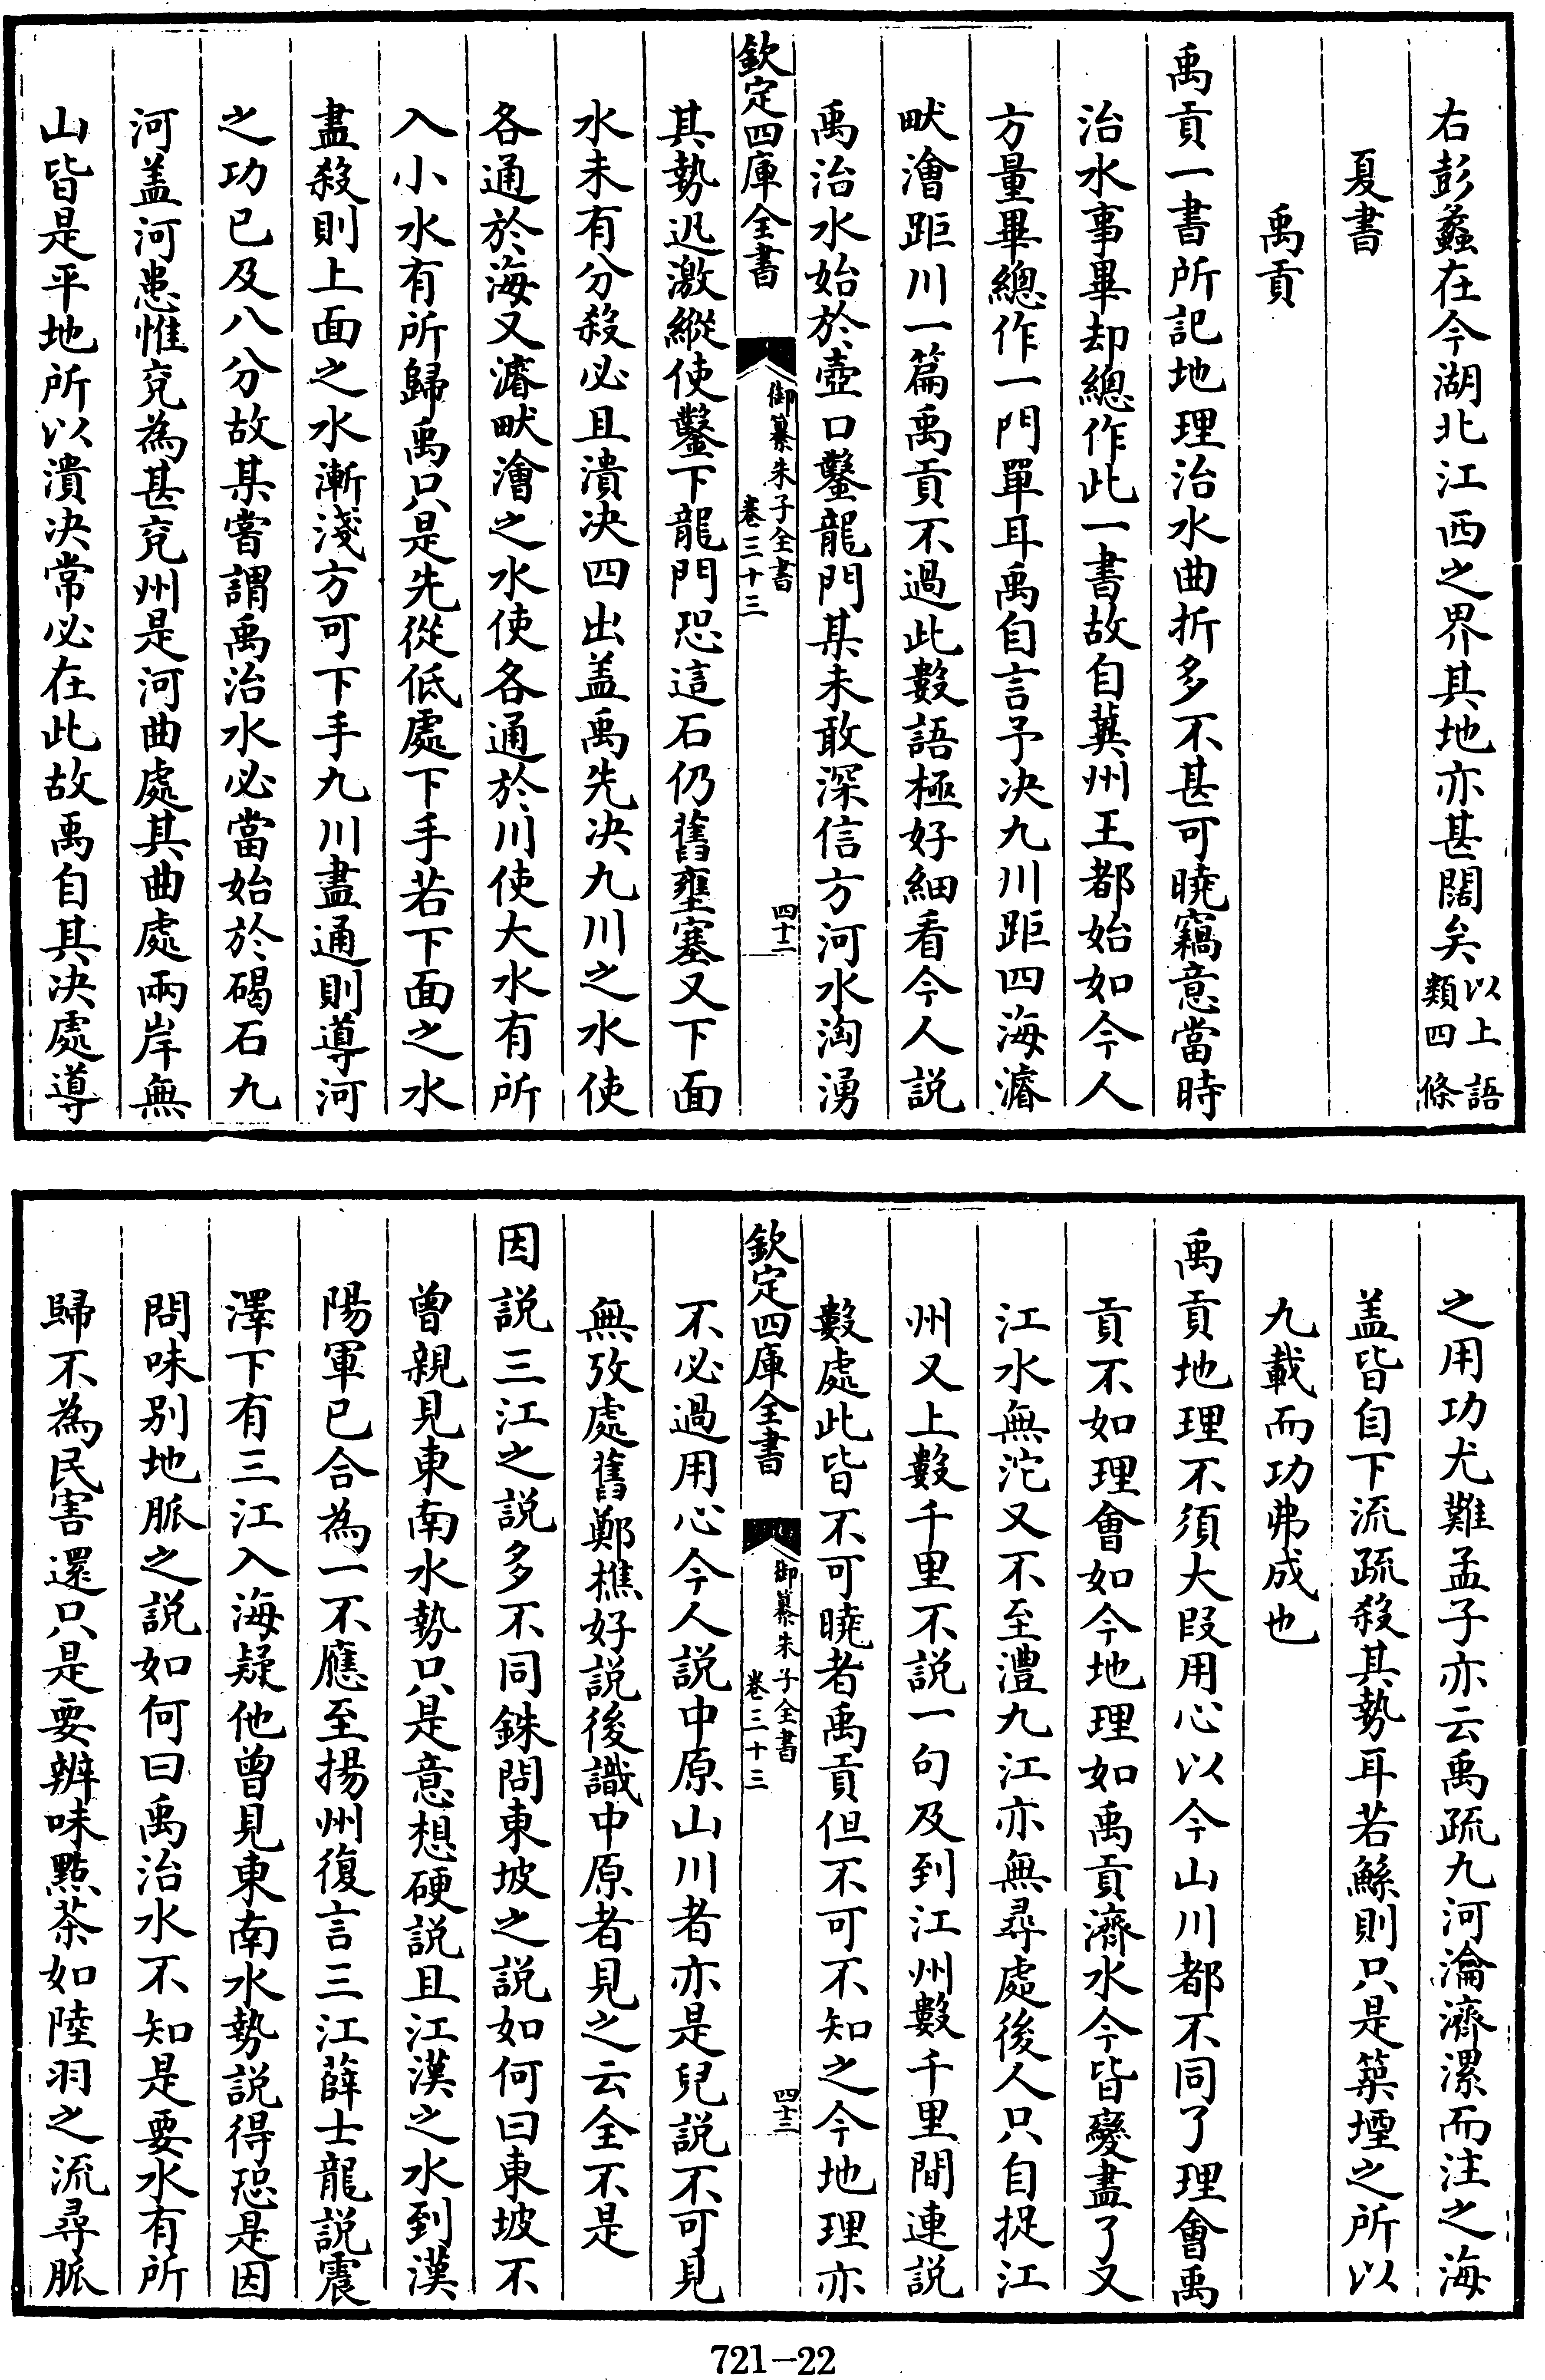 右彭蠡在今湖北江西之界其地亦甚闊矣以上語類四條
夏書
禹貢
禹貢一書所記地理治水曲折多不甚可曉竊意當時
治水事畢却總作此一書故自冀州王都始如今人
方量畢總作一門單耳禹自言予决九川距四海濬
畎澮距川一篇禹貢不過此數語極好細看今人説
禹治水始於壺口鑿龍門某未敢深信方河水洶湧
欽定四庫全書
御纂朱子全書
卷三十三
四十二
其勢迅激縱使鑿下龍門恐這石仍舊壅塞又下面
水未有分殺必且潰决四出盖禹先决九川之水使
各通於海又濬畎澮之水使各通於川使大水有所
入小水有所歸禹只是先從低處下手若下面之水
盡殺則上面之水漸淺方可下手九川盡通則導河
之功已及八分故某嘗謂禹治水必當始於碣石九
河盖河患惟兖為甚兖州是河曲處其曲處兩岸無
山皆是平地所以潰决常必在此故禹自其决處導
之用功尤難孟子亦云禹疏九河瀹濟漯而注之海
盖皆自下流疏殺其勢耳若鯀則只是築堙之所以
九載而功弗成也
禹貢地理不須大段用心以今山川都不同了理會禹
貢不如理會如今地理如禹貢濟水今皆變盡了又
江水無沱又不至澧九江亦無尋處後人只自捉江
州又上數千里不説一句及到江州數千里間連説
數處此皆不可曉者禹貢但不可不知之今地理亦
欽定四庫全書
御纂朱子全書
卷三十三
四十三
不必過用心今人説中原山川者亦是兒説不可見
無攷處舊鄭樵好説後識中原者見之云全不是
因説三江之説多不同銖問東坡之説如何曰東坡不
曾親見東南水勢只是意想硬説且江漢之水到漢
陽軍已合為一不應至揚州復言三江薛士龍説震
澤下有三江入海疑他曾見東南水勢説得恐是因
問味别地脈之説如何曰禹治水不知是要水有所
歸不為民害還只是要辨味點茶如陸羽之流尋脈
721-22